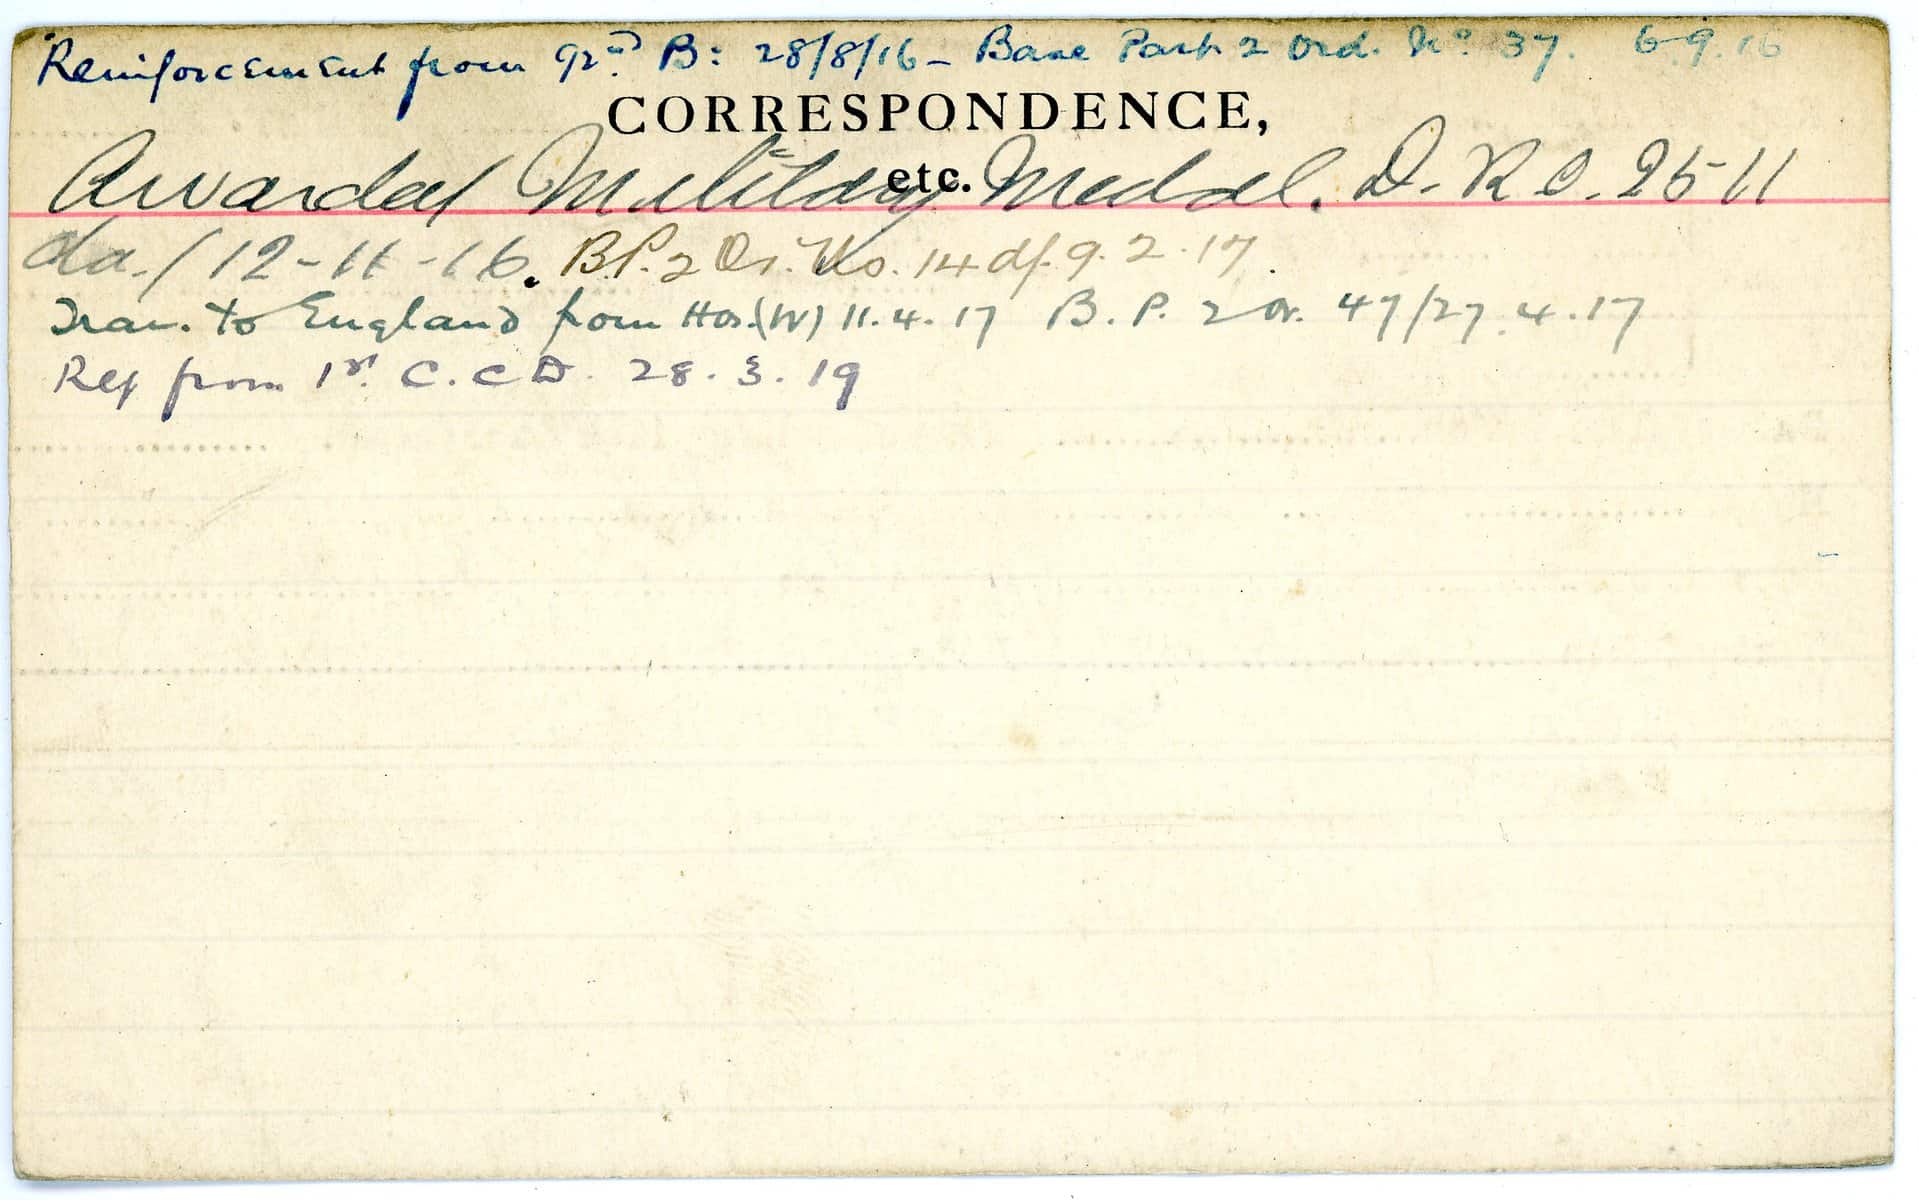 Reinforcement from 92nd B: 28/8/16 - Base Part 2 Ord. No 37. 6-9.16
CORRESPONDENCE,
etc.
Awarded Military Medal. D.R.O. 2511
da/ 12-11-16. B.P. 2 Or. No. 14 d/. 9.2.17.
Tran. to England from Hos.(W) 11.4.17 B.P. 2 Or. 47/27.4.17
from 1st. C.C.D. 28.3.19